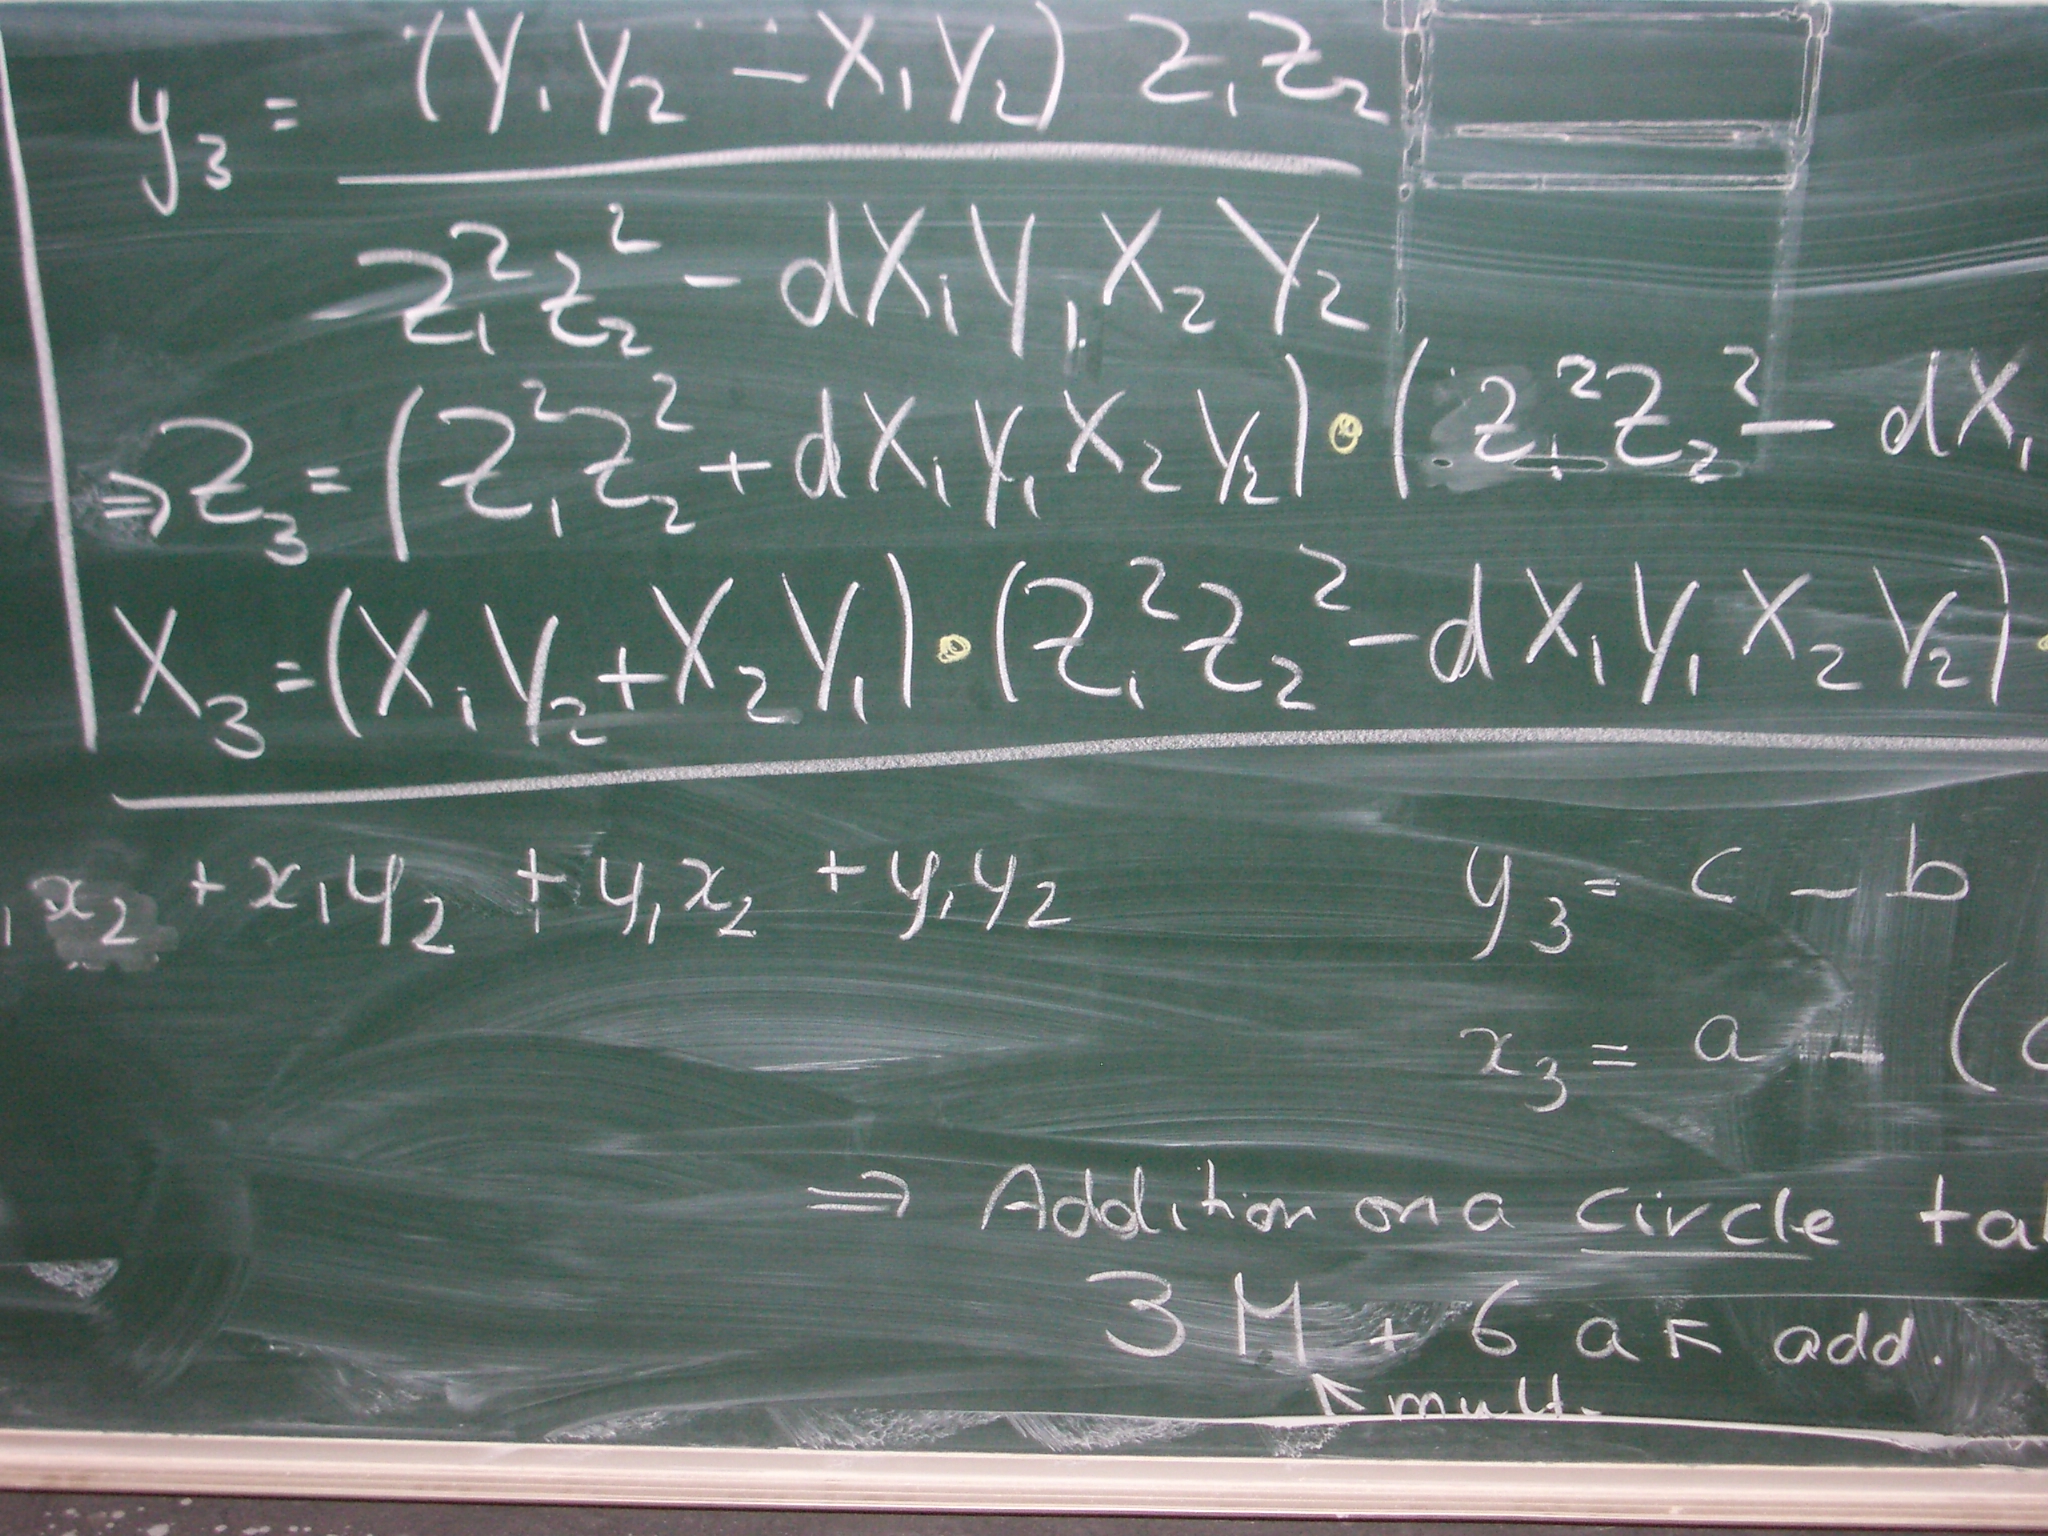 y₃ = (Y₁Y₂ - X₁Y₂) Z₁Z₂
Z₁²Z₂² - dX₁Y₁X₂Y₂
⇒ Z₃ = (Z₁²Z₂² + dX₁Y₁X₂Y₂) • (Z₁²Z₂² - dX₁
X₃ = (X₁Y₂ + X₂Y₁) • (Z₁²Z₂² - dX₁Y₁X₂Y₂) •
₁x₂ + x₁y₂ + y₁x₂ + y₁y₂
y₃ = c - b
x₃ = a - (
⇒ Addition on a circle ta
3M + 6a ↖ add.
↖ mult.